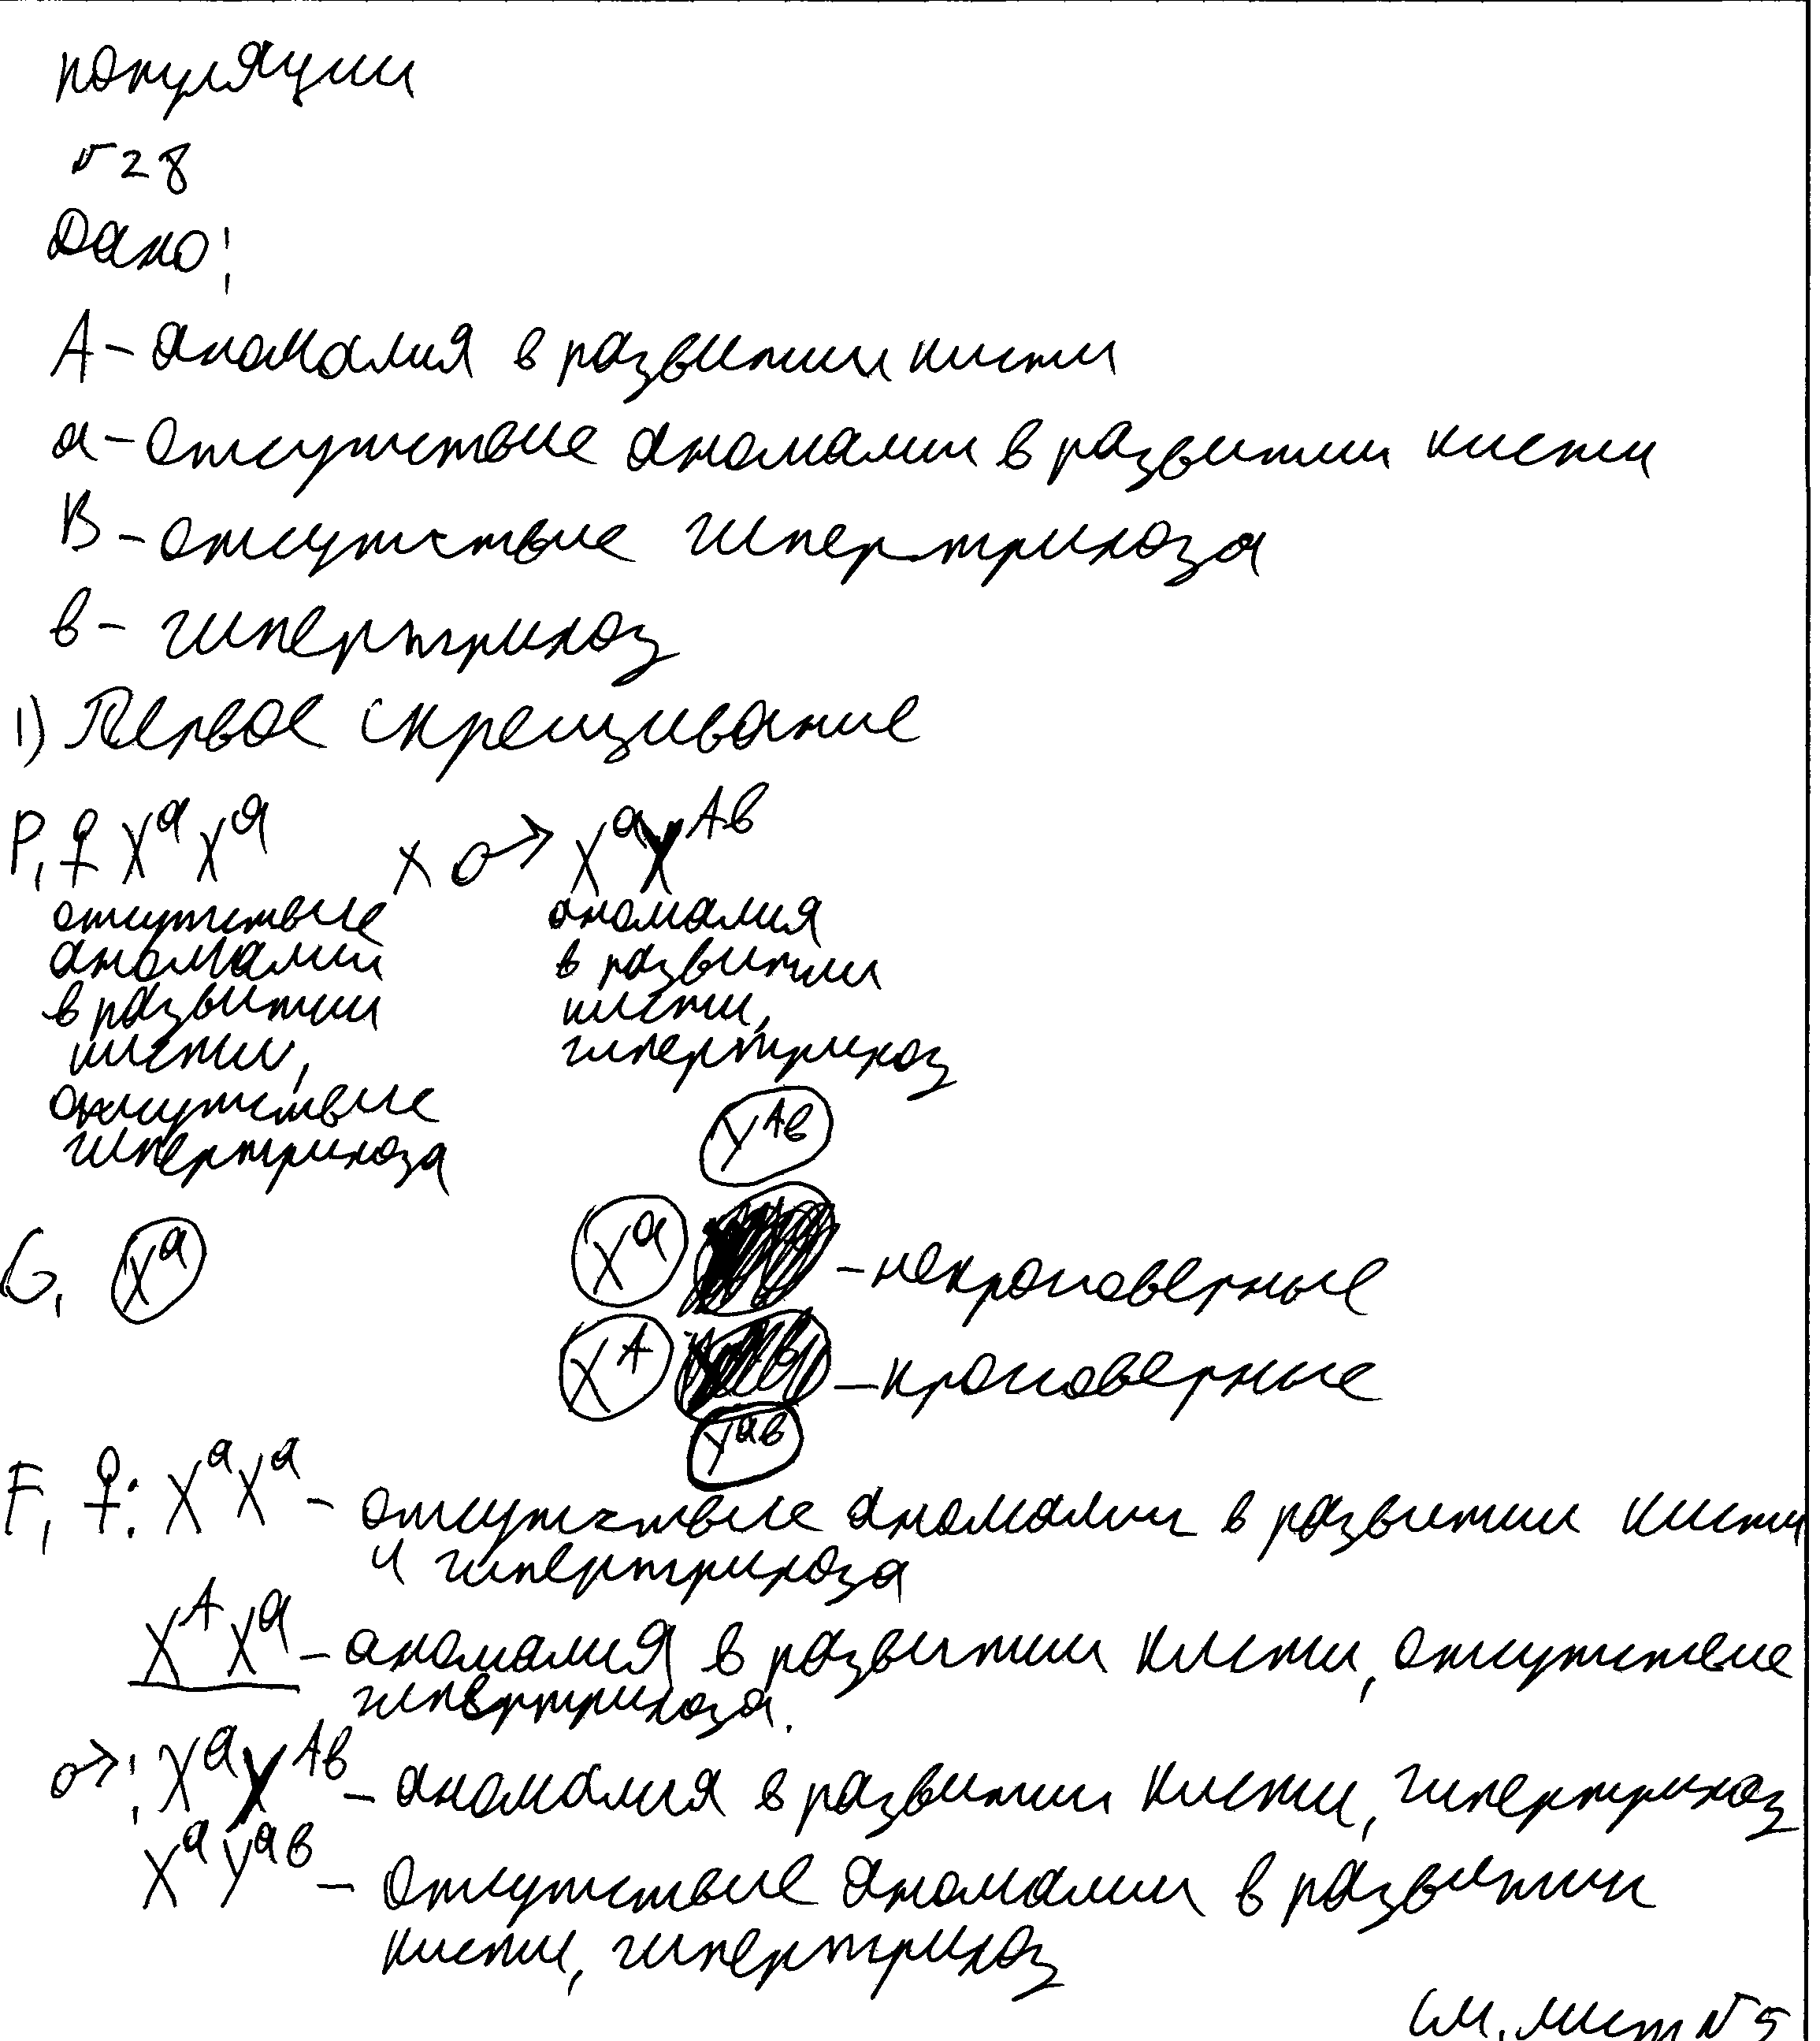 популяции
№28
Дано:
А – аномалия в развитии кисти
а – отсутствие аномалии в развитии кисти
В – отсутствие гипертрихоза
в – гипертрихоз
1) Первое скрещивание
P₁ ♀ XᵃXᵃ × ♂ XᵃYᴬᵇ
отсутствие аномалии в развитии кисти, отсутствие гипертрихоза
аномалия в развитии кисти, гипертрихоз
Yᴬᵇ
G₁ Xᵃ Xᵃ – некроссоверные
Xᴬ – кроссоверные
Yᵃᵇ
F₁ ♀: XᵃXᵃ – отсутствие аномалии в развитии кисти
и гипертрихоза
XᴬXᵃ – аномалия в развитии кисти, отсутствие
гипертрихоза.
♂: XᵃYᴬᵇ – аномалия в развитии кисти, гипертрихоз
XᵃYᵃᵇ – отсутствие аномалии в развитии
кисти, гипертрихоз
см. лист №5